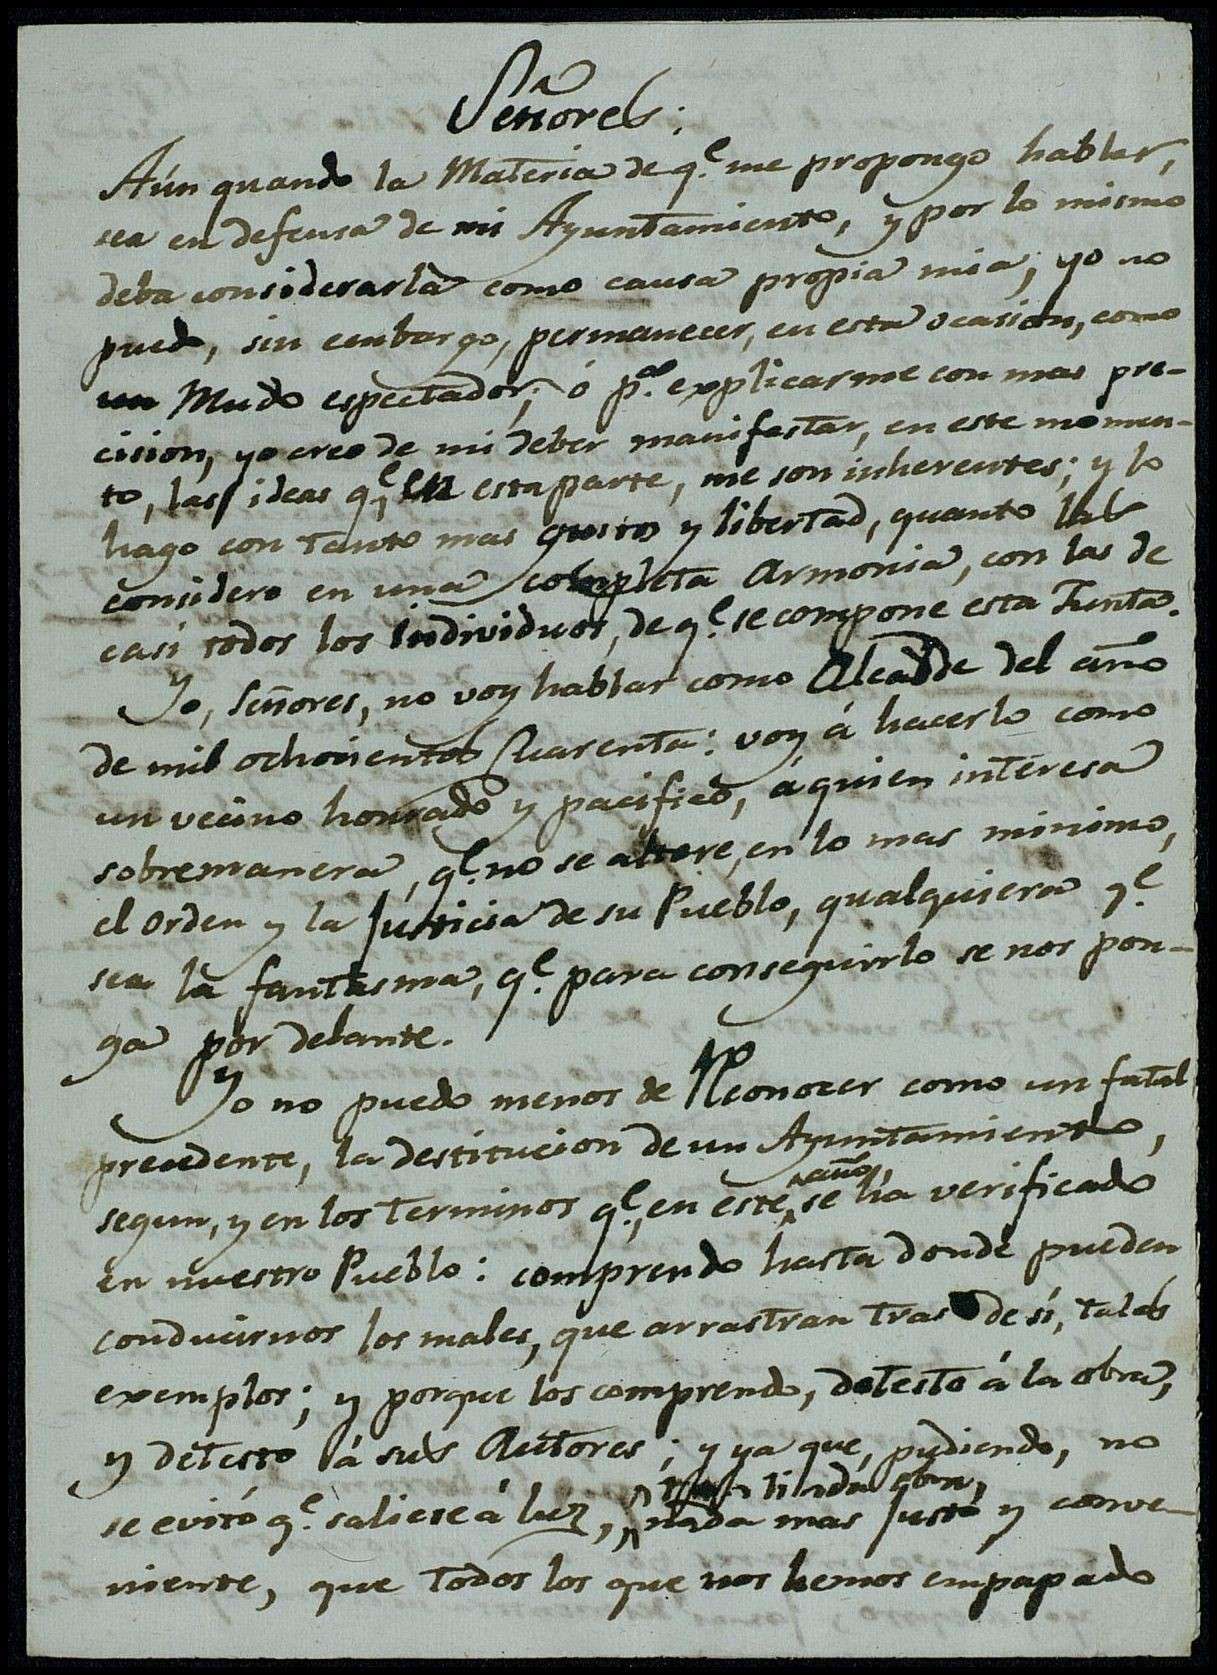 Señores:
Aún quando la Materia de q.e me propongo hablar,
sea en defensa de mi Ayuntamiento, y por lo mismo
deba considerarla como causa propia mia, yo no
puedo, sin embargo, permanecer, en esta ocasion, como
un Mudo espectador; ó p.a explicarme con mas pre-
cision, yo creo de mi deber manifestar, en este momen-
to, las ideas q.e, en esta parte, me son inherentes; y lo
hago con tanto mas gusto y libertad, quanto las
considero en una completa Armonia, con las de
casi todos los individuos, de q.e se compone esta Junta.
Yo, Señores, no voy hablar como Alcalde del año
de mil ochocientos Quarenta: voy á hacerlo como
un vecino honrado y pacifico, á quien interesa
sobremanera, q.e no se altere, en lo mas minimo,
el orden y la Justicia de su Pueblo, qualquiera q.e
sea la fantasma, q.e para conseguirlo se nos pon-
ga por delante.
Yo no puedo menos de Reconocer como un fatal
precedente, la destitucion de un Ayuntamiento,
segun, y en los terminos q.e, en este año, se ha verificado
en nuestro Pueblo: comprendo hasta donde pueden
conducirnos los males, que arrastran tras de sí, tales
exemplos; y porque los comprendo, detesto á la obra,
y detesto á sus Autores; y ya que, pudiendo, no
se evitó q.e saliese á luz, tan linda obra,
nada mas Justo y conve-
niente, que todos los que nos hemos empapado